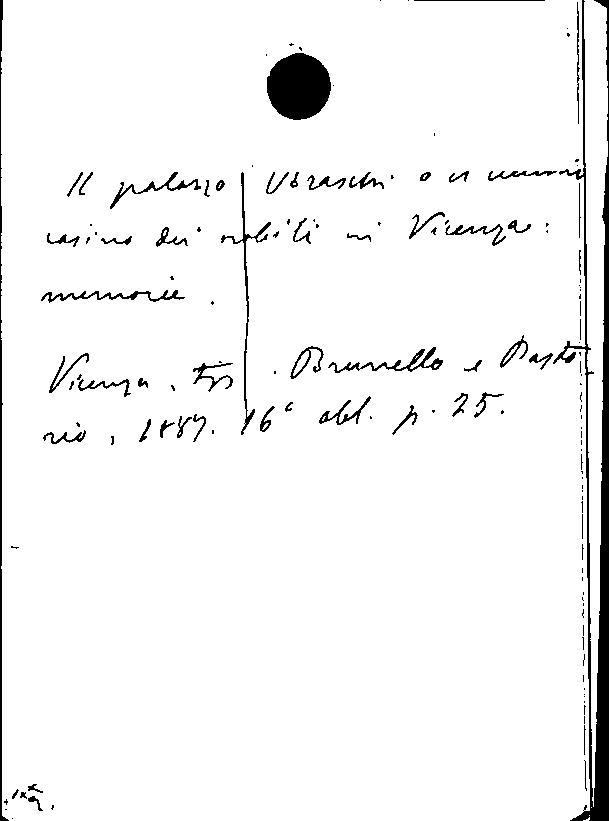 Il palazzo Vbraschi o il nuovo
casino dei nobili in Vicenza:
memorie.
Vicenza, Tip. Brunello e Pasto
rio, 1887. 16° obl. p. 25.